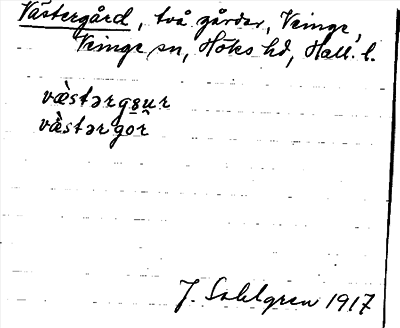 Västergård, två gårdar, Veinge,
Veinge sn, Höks hd, Hall. l.
væ̀stərgɜur
væ̀stərgor
J. Sahlgren 1917